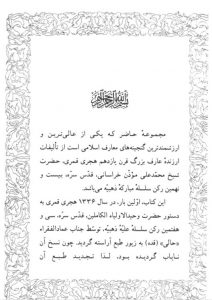 بسم الله الرحمن الرحیم
مجموعهٔ حاضر که یکی از عالی‌ترین و
ارزشمندترین گنجینه‌های معارف اسلامی است از تألیفات
ارزندهٔ عارف بزرگ قرن یازدهم هجری قمری، حضرت
شیخ محمدعلی مؤذن خراسانی، قدّس سرّه، بیست و
نهمین رکن سلسلهٔ مبارکهٔ ذهبیّه می‌باشد.
این کتاب، اولین بار، در سال ۱۳۳۶ هجری قمری به
دستور حضرت وحیدالاولیاء الکاملین، قدّس سرّه، سی و
هفتمین رکن سلسلهٔ علیّهٔ ذهبیّه، توسّط جناب عمادالفقراء
«حالی» (قده) به زیور طبع آراسته گردید. چون نسخ آن
نایاب گردیده بود، لذا تجدید طبع آن